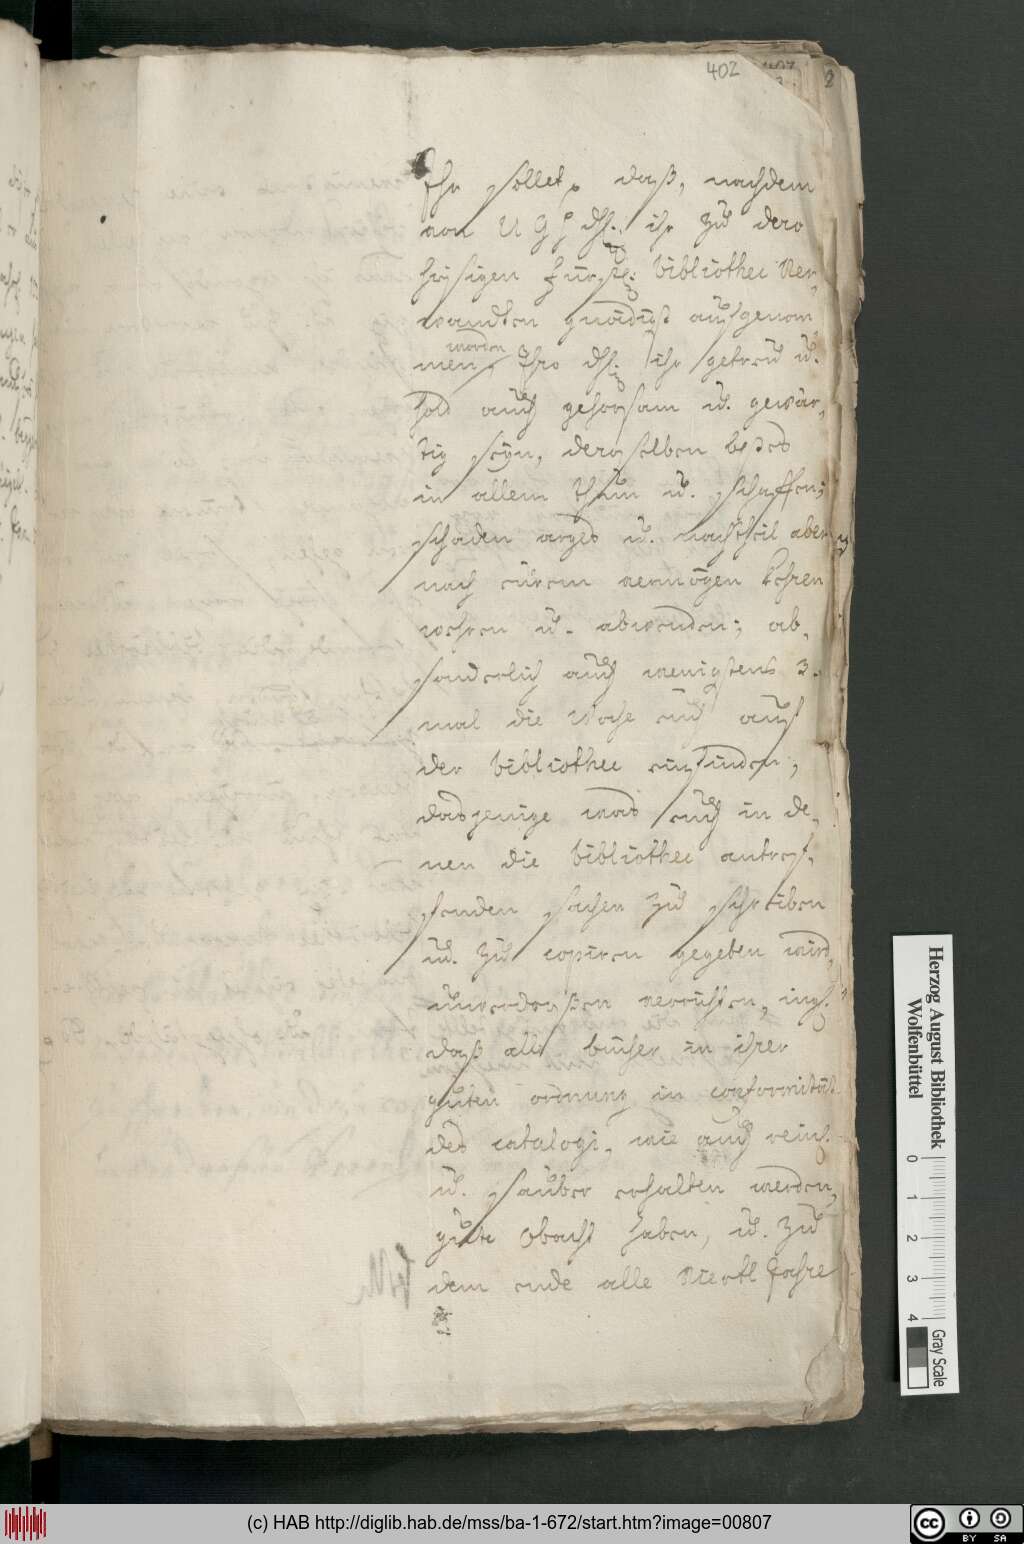 402
8
Ihr sollet, daß, nachdem
von U G F dh. ihr zu dero
hiesigen Fürstl: bibliothec Ver-
wandten gnädigst aufgenom
worden
men, Ihro dh. ihr getreu u.
hold auch gehorsam u. gewär-
tig seyn, deroselben bestes
in allem thun u. schaffen;
schaden arges u. nachtheil aber
nach eurem vermögen kehren
wehren u. abwenden; ab-
sonderlich auch wenigstens 3.
mal die Woche euch auf
der bibliothec einfinden,
dasjenige was euch in de-
nen die bibliothec antref-
fenden sachen zu schreiben
u. zu copiren gegeben wird,
unverdrossen verrichten, ingl.
daß alle bücher in ihrer
guten ordnung in conformität
des catalogi, wie auch rein
u. sauber erhalten werden,
gute Obacht haben, u. zu
dem ende alle Viertl Jahre
Herzog August Bibliothek
Wolfenbüttel
0 1 2 3 4
Gray Scale
(c) HAB http://diglib.hab.de/mss/ba-1-672/start.htm?image=00807
HAB
cc BY SA